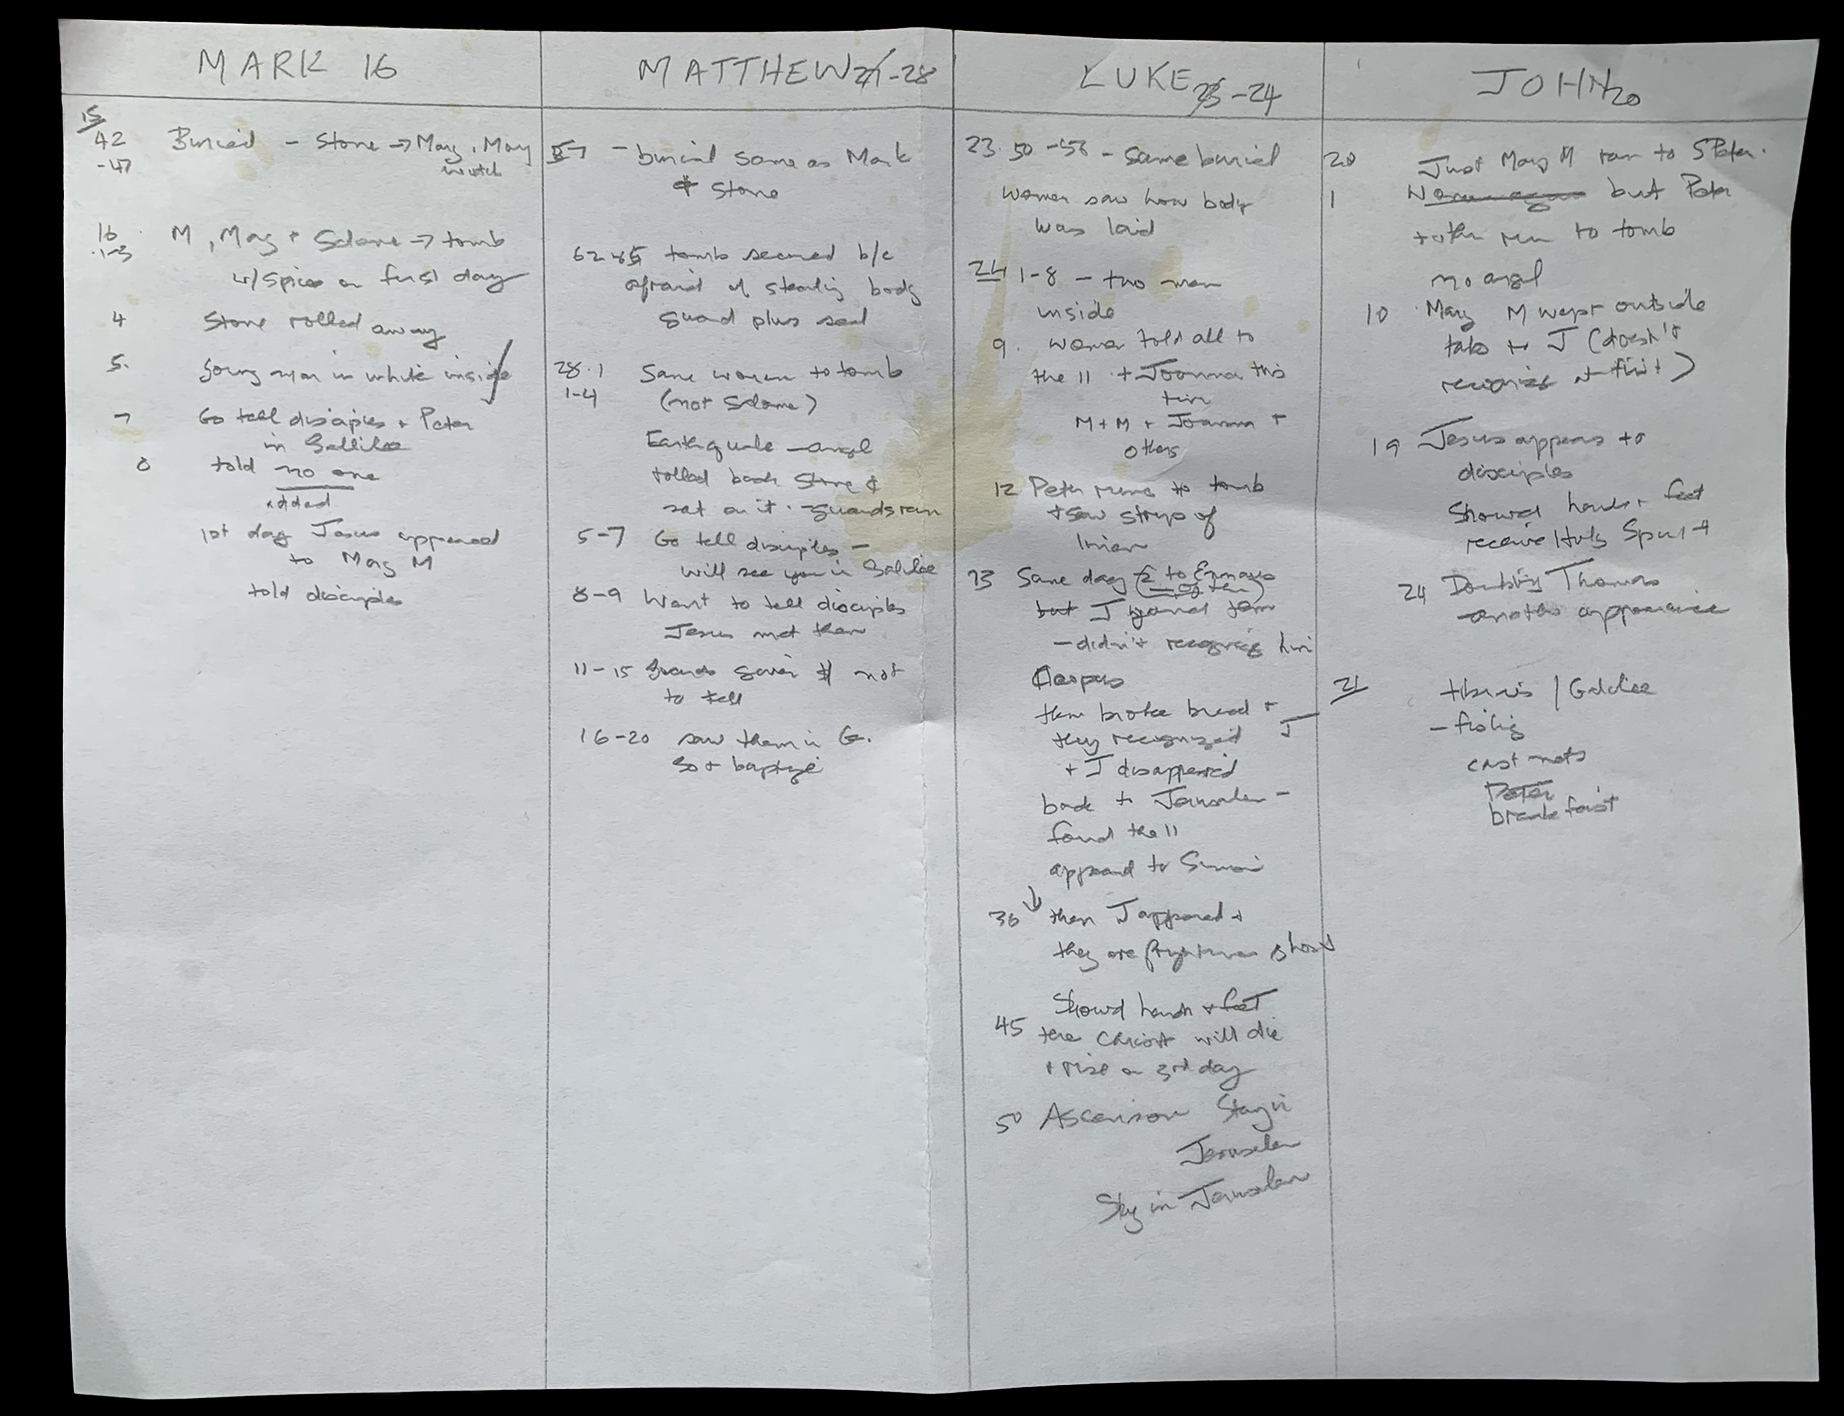 MARK 16
15
42 Buried - Stone → Mary, Mary
-47 watch
16 M, Mary + Salome → tomb
1-3 w/ spices on first day
4 Stone rolled away
5. young man in white inside
7 Go tell disciples + Peter
in Gallilee
8 told no one
added
1st day Jesus appeared
to Mary M
told disciples
MATTHEW 27-28
57 - burial same as Mark
& stone
62 tomb secured b/c
afraid of stealing body
guard plus seal
28.1 Same women to tomb
1-4 (not Salome)
Earthquake - angel
rolled back stone &
sat on it. guards
5-7 Go tell disciples -
will see you in Galilee
8-9 Went to tell disciples
Jesus met them
11-15 Guards given $ not
to tell
16-20 saw them in G.
Go + baptize
LUKE 23-24
23.50-56 - same burial
women saw how body
was laid
24 1-8 - two men
inside
9. women told all to
the 11 + Joanna this
time
M + M + Joanna +
others
12 Peter runs to tomb
+ saw strips of
linen
13 Same day (2 to Emmaus
but J joined them
- didn't recognize him
then broke bread +
they recognized J
+ J disappeared
back to Jerusalem -
found the 11
appeared to Simon
36 ↓ then J appeared +
they are frightened ghost
Showed hands + feet
45 the Christ will die
+ rise on 3rd day
50 Ascension Stay in
Jerusalem
Stay in Jerusalem
JOHN 20
20 Just Mary M ran to S Peter.
1 but Peter
+ other run to tomb
no angel
10 Mary M wept outside
talks to J (doesn't
recognize at first)
19 Jesus appears to
disciples
Showed hands + feet
receive Holy Spirit
24 Doubting Thomas
another appearance
21 tiberias / Galilee
- fishing
cast nets
Peter
breakfast